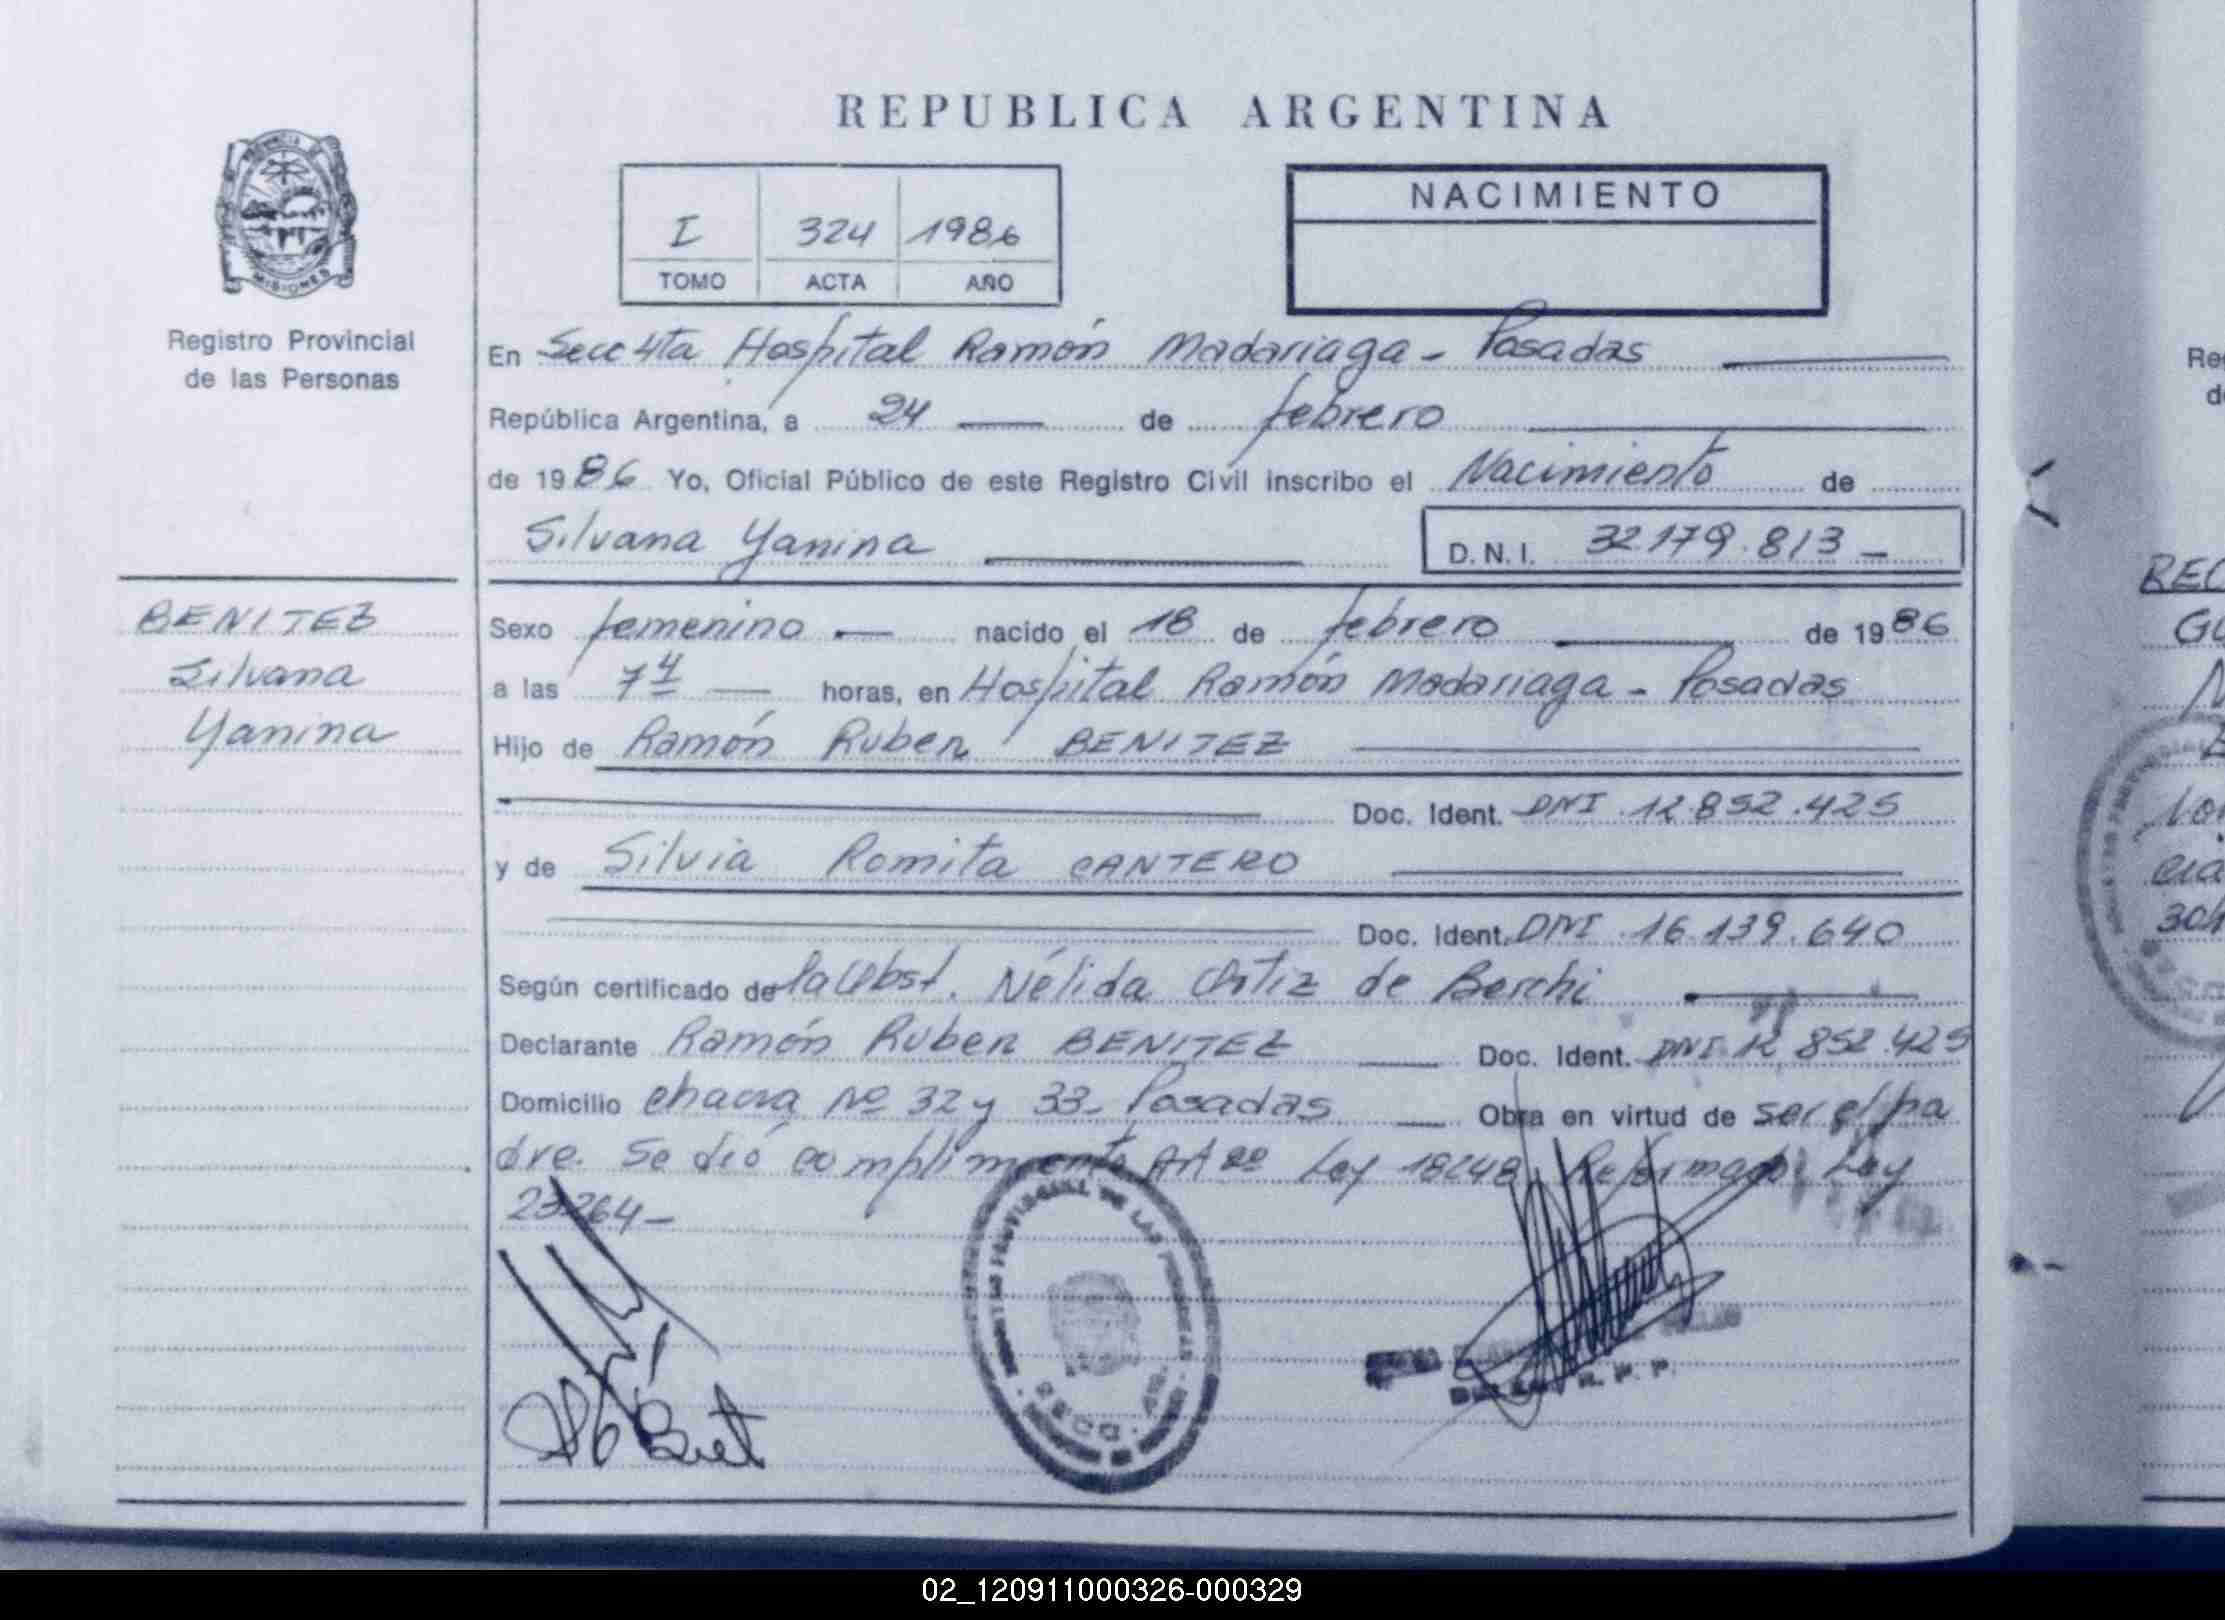 REPUBLICA ARGENTINA
PROVINCIA DE
MISIONES
Registro Provincial
de las Personas
I 324 1986
TOMO ACTA AÑO
NACIMIENTO
En Secc 4ta Hospital Ramón Madariaga - Posadas
República Argentina, a 24 de febrero
de 1986 Yo, Oficial Público de este Registro Civil inscribo el Nacimiento de
Silvana Yanina D.N.I. 32.179.813 -
BENITEZ
Silvana
Yanina
Sexo femenino nacido el 18 de febrero de 1986
a las 7 horas, en Hospital Ramón Madariaga - Posadas
Hijo de Ramón Ruben BENITEZ
Doc. Ident. DNI 12.852.425
y de Silvia Romita CANTERO
Doc. Ident. DNI 16.139.640
Según certificado de la Obst. Nélida Ortiz de Berchi
Declarante Ramón Ruben BENITEZ Doc. Ident. DNI 12 852.425
Domicilio chacra Nº 32 y 33- Posadas Obra en virtud de ser el pa
dre. Se dió cumplimiento Art Ley 18248 Reformada Ley
23264-
REGISTRO PROVINCIAL DE LAS PERSONAS
R. P. P.
02_120911000326-000329